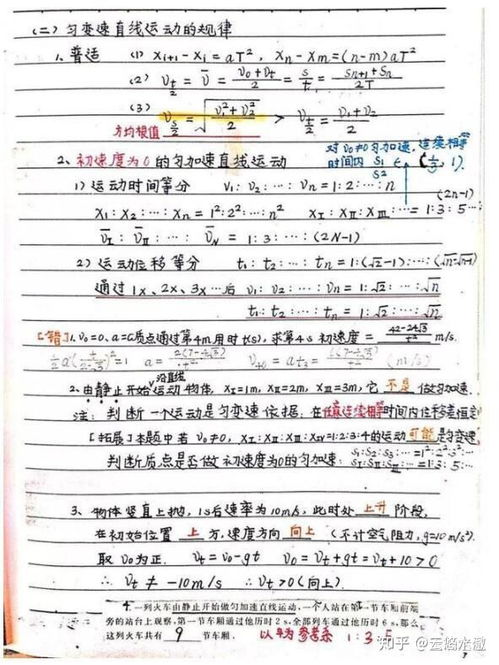 (二) 匀变速直线运动的规律
1、普适 (1) Xᵢ₊₁ - Xᵢ = aT², Xn - Xm = (n-m)aT²
(2) V_{t/2} = V̄ = (V₀+Vt)/2 = S/t = (Sn+1+Sn)/2T
(3) V_{s/2} = √((V₁²+V₂²)/2) > V_{t/2} = (V₁+V₂)/2
方均根值
对V₀≠0匀加速,连续相等
时间内 S₁/S₂ ∈ (1/3, 1)
2、初速度为0的匀加速直线运动
1) 运动时间等分 V₁:V₂:⋯:Vn = 1:2:⋯:n
X₁:X₂:⋯:Xn = 1²:2²:⋯:n² XⅠ:XⅡ:XⅢ⋯ = 1:3:5⋯(2n-1)
V̄Ⅰ:V̄Ⅱ:⋯:V̄N = 1:3:⋯:(2N-1)
2) 运动位移等分 t₁:t₂:⋯:tn = 1:(√2-1):⋯:(√n-√n-1)
通过1x、2x、3x⋯后 V₁:V₂:⋯:Vn = 1:√2:⋯:√n
t₁:t₂:⋯:tn = 1:√2:⋯:√n
[错]1. V₀=0、a=C质点通过第4m用时t(s),求第4s初速度= m/s.
(m/s)
2、由静止开始沿直线运动物体, XⅠ=1m, XⅡ=2m, XⅢ=3m,它不是做匀加速.
注: 判断一个运动是匀变速依据:在任意连续相等时间内位移差恒定
[拓展]本题中若V₀≠0, XⅠ:XⅡ:XⅢ:XⅣ=1:2:3:4的运动可能是匀变速
判断质点是否做初速度为0的匀加速: S₁:S₂:S₃:⋯=1²:2²:3²:⋯
SⅠ:SⅡ:SⅢ:⋯=1:3:5:⋯
3、物体竖直上抛, 1s后速率为10m/s, 此时处上升阶段,
在初始位置上方,速度方向向上(不计空气阻力, g=10m/s²).
取V₀为正. Vt=V₀-gt V₀=Vt+gt=Vt+10>0
∴ Vt ≠ -10m/s ∴ Vt>0(向上)
4.一列火车由静止开始做匀加速直线运动,一个人站在第一节车厢前端
旁的站台上观察,第一节车厢通过他历时2s,全部列车通过他历时6s,那么
这列火车共有 9 节车厢. 以车为参考系 1:3:5
知乎 @云焰冰澈